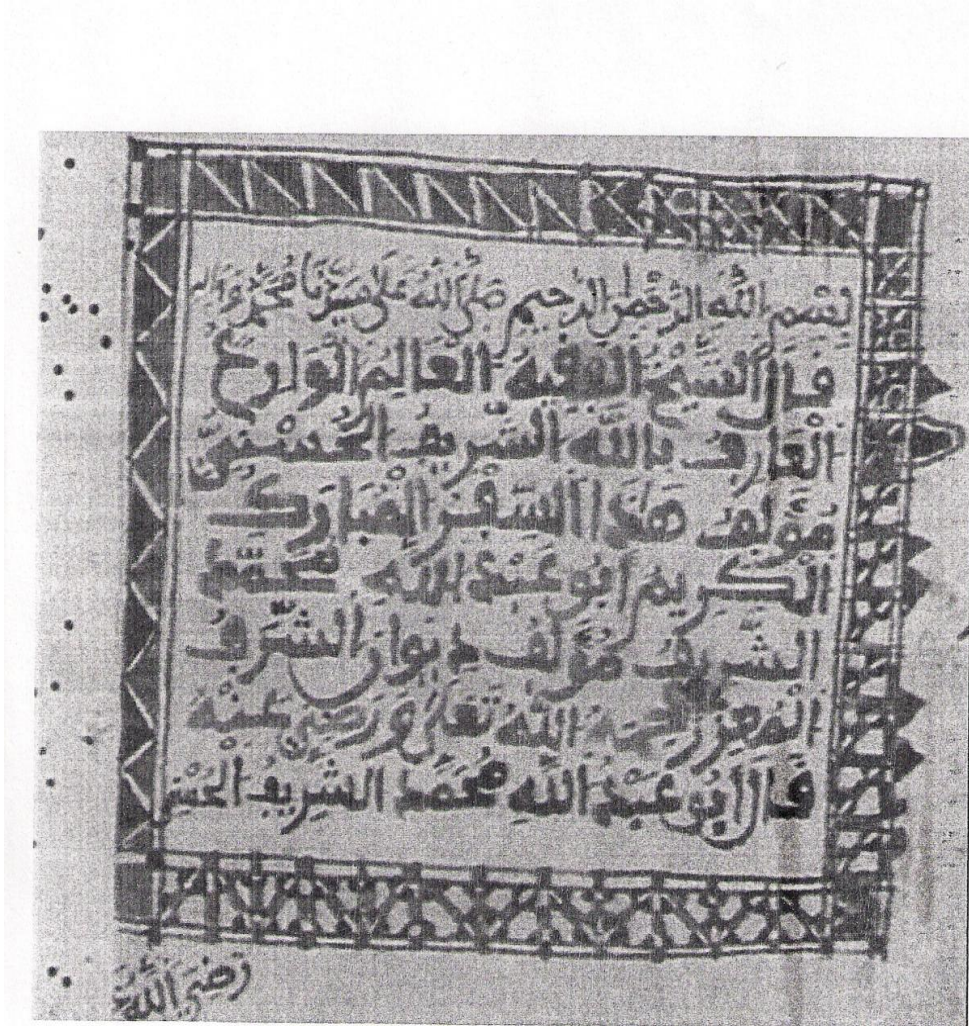 بِسْمِ اللَّهِ الرَّحْمٰنِ الرَّحِيمِ صَلَّى اللَّهُ عَلَى سَيِّدِنَا مُحَمَّدٍ وَآلِهِ
قال الشَّيْخُ الفَقِيهُ العَالِمُ الْوَارِعُ
الْعَارِفُ بِاللَّهِ الشَّرِيفُ الْحَسَنِيُّ
مُؤَلِّفُ هَذَا السِّفْرِ الْمُبَارَكِ
الْكَرِيمُ أَبُو عَبْدِ اللَّهِ مُحَمَّدٌ
الشَّرِيفُ مُؤَلِّفُ دِيوَانِ الشَّرَفِ
رَحِمَهُ اللَّهُ تَعَلَى وَرَضِيَ عَنْهُ
قَالَ أَبُو عَبْدِ اللَّهِ مُحَمَّد الشَّرِيفُ
رَضِيَ اللَّهُ